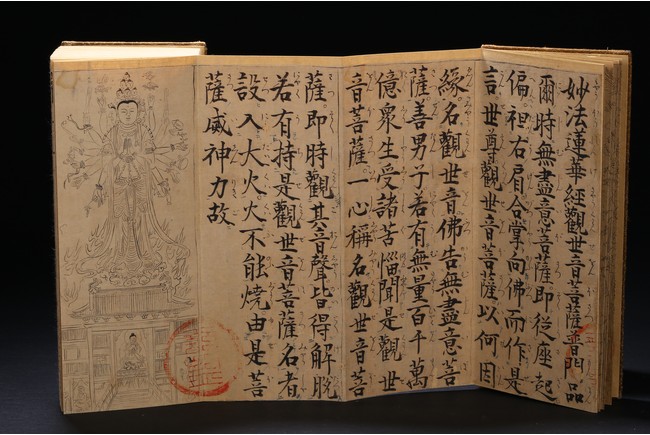 妙法蓮華經觀世音菩薩普門品
爾時無盡意菩薩即從座起
偏袒右肩合掌向佛而作是
言世尊觀世音菩薩以何因
緣名觀世音佛告無盡意菩
薩善男子若有無量百千萬
億衆生受諸苦惱聞是觀世
音菩薩一心稱名觀世音菩
薩即時觀其音聲皆得解脫
若有持是觀世音菩薩名者
設入大火火不能燒由是菩
薩威神力故